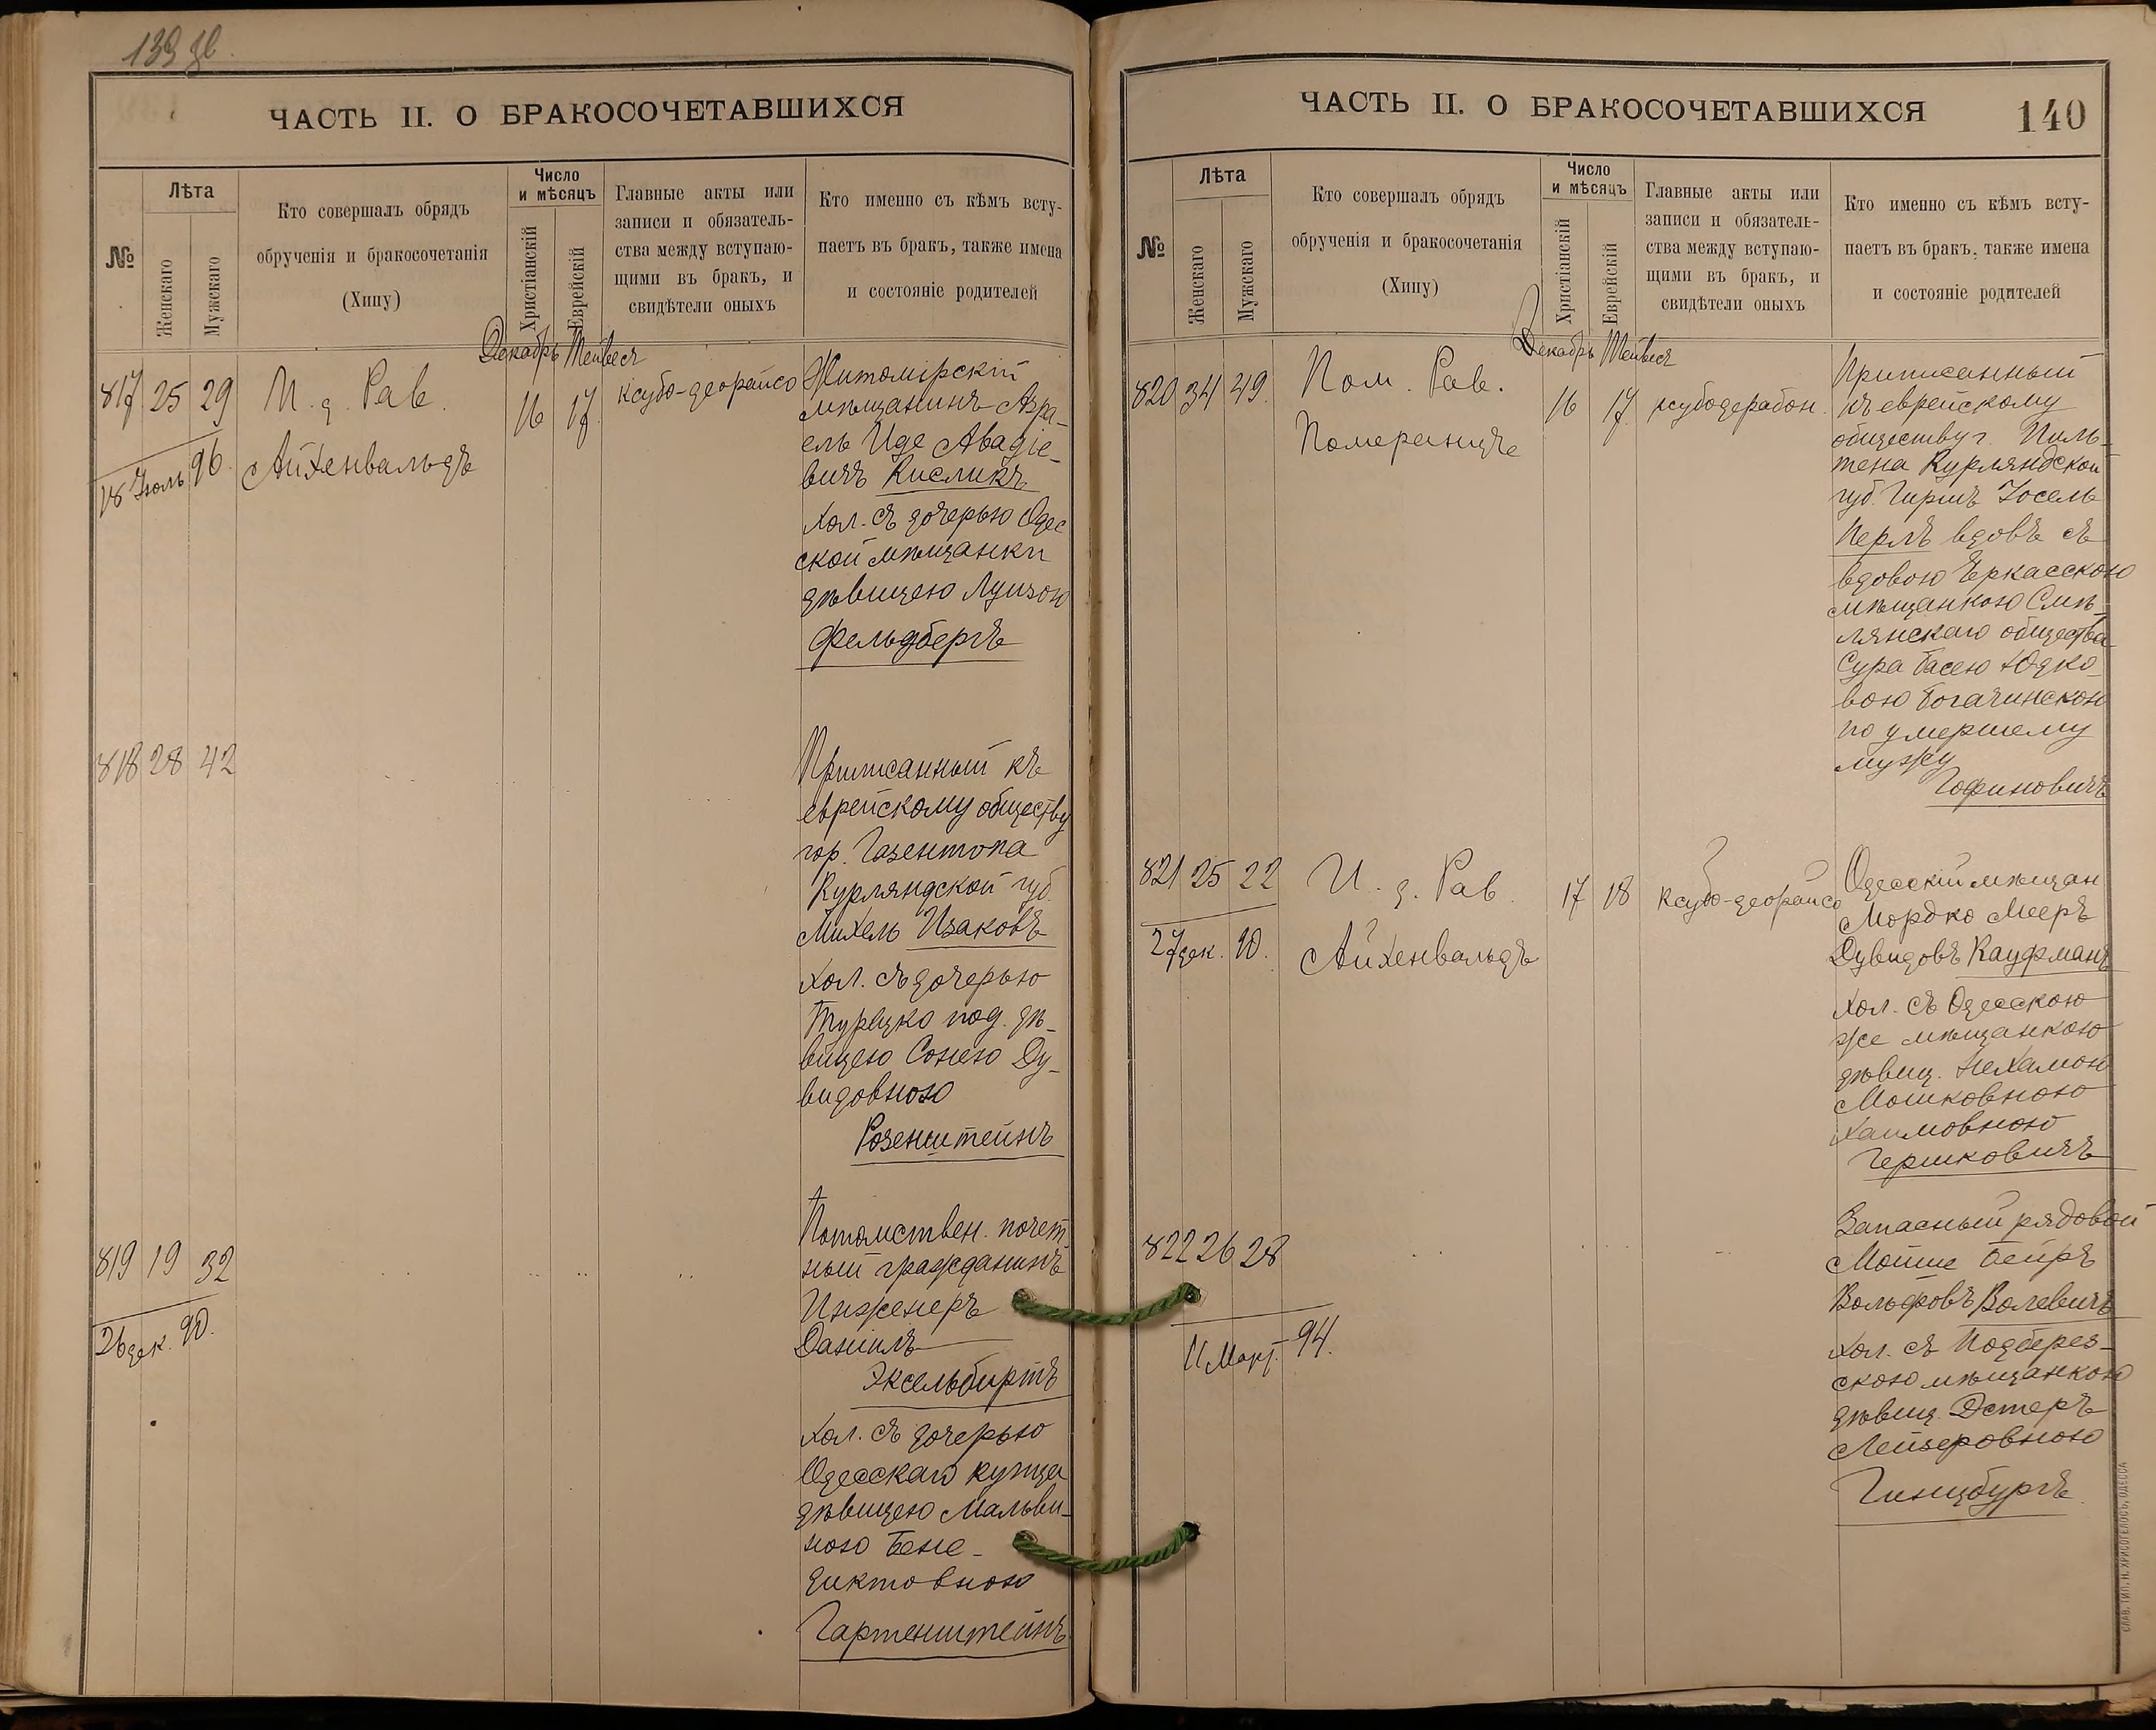 139 об.
ЧАСТЬ II. О БРАКОСОЧЕТАВШИХСЯ
№
Лѣта
Женскаго
Мужскаго
Кто совершалъ обрядъ
обрученія и бракосочетанія
(Хипу)
Число
и мѣсяцъ
Христіанскій
Еврейскій
Главные акты или
записи и обязатель-
ства между вступаю-
щими въ бракъ, и
свидѣтели оныхъ
Кто именно съ кѣмъ всту-
паетъ въ бракъ, также имена
и состояніе родителей
Декабрь Тейвесъ
817 25 29 И. д. Рав. 16 17 ксубо-деорайсо
18 Іюль 96. Айхенвальдъ
Житомірскій
мѣщанинъ Азра-
елъ Иде Авадіе-
вичъ Кисликъ
хол. съ дочерью Одес
ской мѣщанки
дѣвицею Луизою
Фельдбергъ
818 28 42
Приписанный къ
еврейскому обществу
гор. Газенпота
Курляндской губ.
Михель Изаковъ
хол. съ дочерью
Турецко под. дѣ-
вицею Сонею Ду-
видовною
Розенштейнъ
819 19 32
26 дек. 90.
Потомствен. почет
ный гражданинъ
Инженеръ
Даніилъ
Эксельбиртъ
хол. съ дочерью
Одесскаго купца
дѣвицею Мальви-
ною Бене-
диктовною
Гартенштейнъ
ЧАСТЬ II. О БРАКОСОЧЕТАВШИХСЯ
140
№
Лѣта
Женскаго
Мужскаго
Кто совершалъ обрядъ
обрученія и бракосочетанія
(Хипу)
Число
и мѣсяцъ
Христіанскій
Еврейскій
Главные акты или
записи и обязатель-
ства между вступаю-
щими въ бракъ, и
свидѣтели оныхъ
Кто именно съ кѣмъ всту-
паетъ въ бракъ, также имена
и состояніе родителей
Декабрь Тейвесъ
820 34 49. Пом. Рав. 16 17. ксубодерабон.
Померанцъ
Приписанный
къ еврейскому
обществу г. Пиль-
тена Курляндской
губ. Гиршъ Іосель
Перлъ вдовъ съ
вдовою Черкасскою
мѣщанкою Смѣ-
лянскаго общества
Сура Басею Юдко-
вою Богачинскою
по умершему
мужу
Гофиновичъ
821 25 22 И. д. Рав. 17 18 ксубо-деорайсо
27 дек. 90. Айхенвальдъ
Одесскій мѣщан
Мордко Мееръ
Дувидовъ Кауфманъ
хол. съ Одесскою
же мѣщанкою
дѣвиц. Нехамою
Мошковною
Хаимовною
Гершковичъ
822 26 28
11 Март. 94.
Запасный рядовой
Мойше Бейръ
Вольфовъ Волевичъ
хол. съ Подберез-
скою мѣщанкою
дѣвиц. Эстеръ
Лейзеровною
Гинцбургъ
СЛАВ. ТИП. Н. ХРИСОГЕЛОСЪ, ОДЕССА